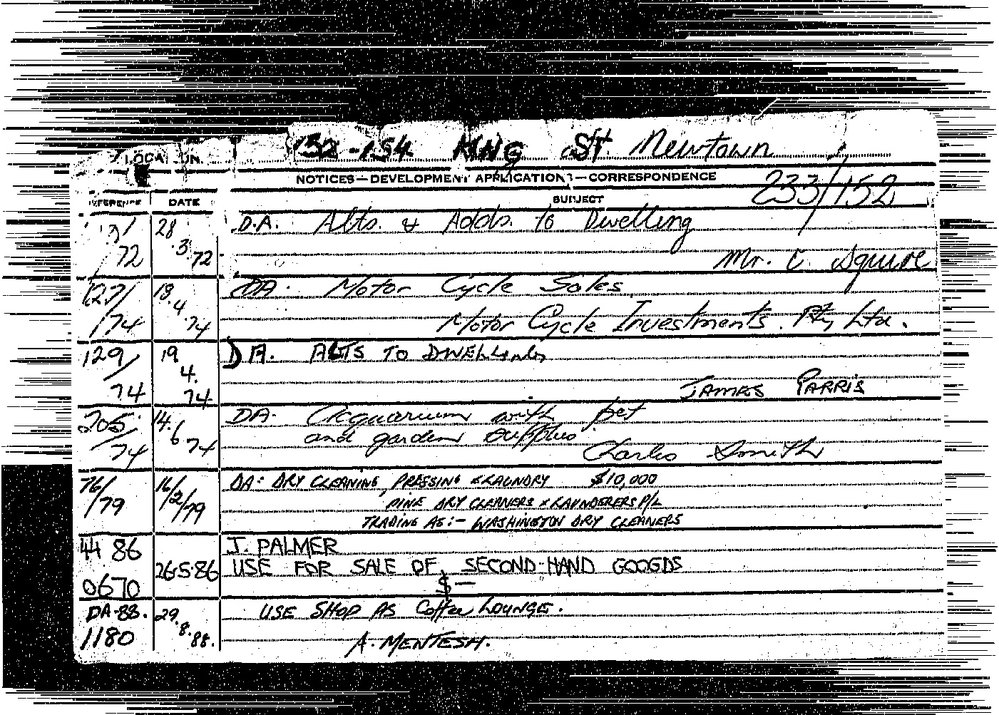 LOCATION 152-154 KING ST. Newtown
NOTICES—DEVELOPMENT APPLICATIONS—CORRESPONDENCE
233/152
REFERENCE DATE SUBJECT
/72 28 3 72 D.A. Alts. & Adds. to Dwelling
Mr. C. Squire
127/74 18.4.74 DA. Motor Cycle Sales
Motor Cycle Investments Pty Ltd.
129/74 19 4. 74 DA. ALTS TO DWELLING
JAMES PARRIS
205/74 14.6.74 DA. Acquarium with pet
and garden supplies
Charles Smith
76/79 16/2/79 DA: DRY CLEANING, PRESSING & LAUNDRY $10,000
PINE DRY CLEANERS & LAUNDERERS P/L
TRADING AS:- WASHINGTON DRY CLEANERS
44 86 0670 26.5.86 J. PALMER
USE FOR SALE OF SECOND-HAND GOOGDS
$—
DA-88. 1180 29.8.88. USE SHOP AS Coffee LOUNGE.
A. MENTESH.